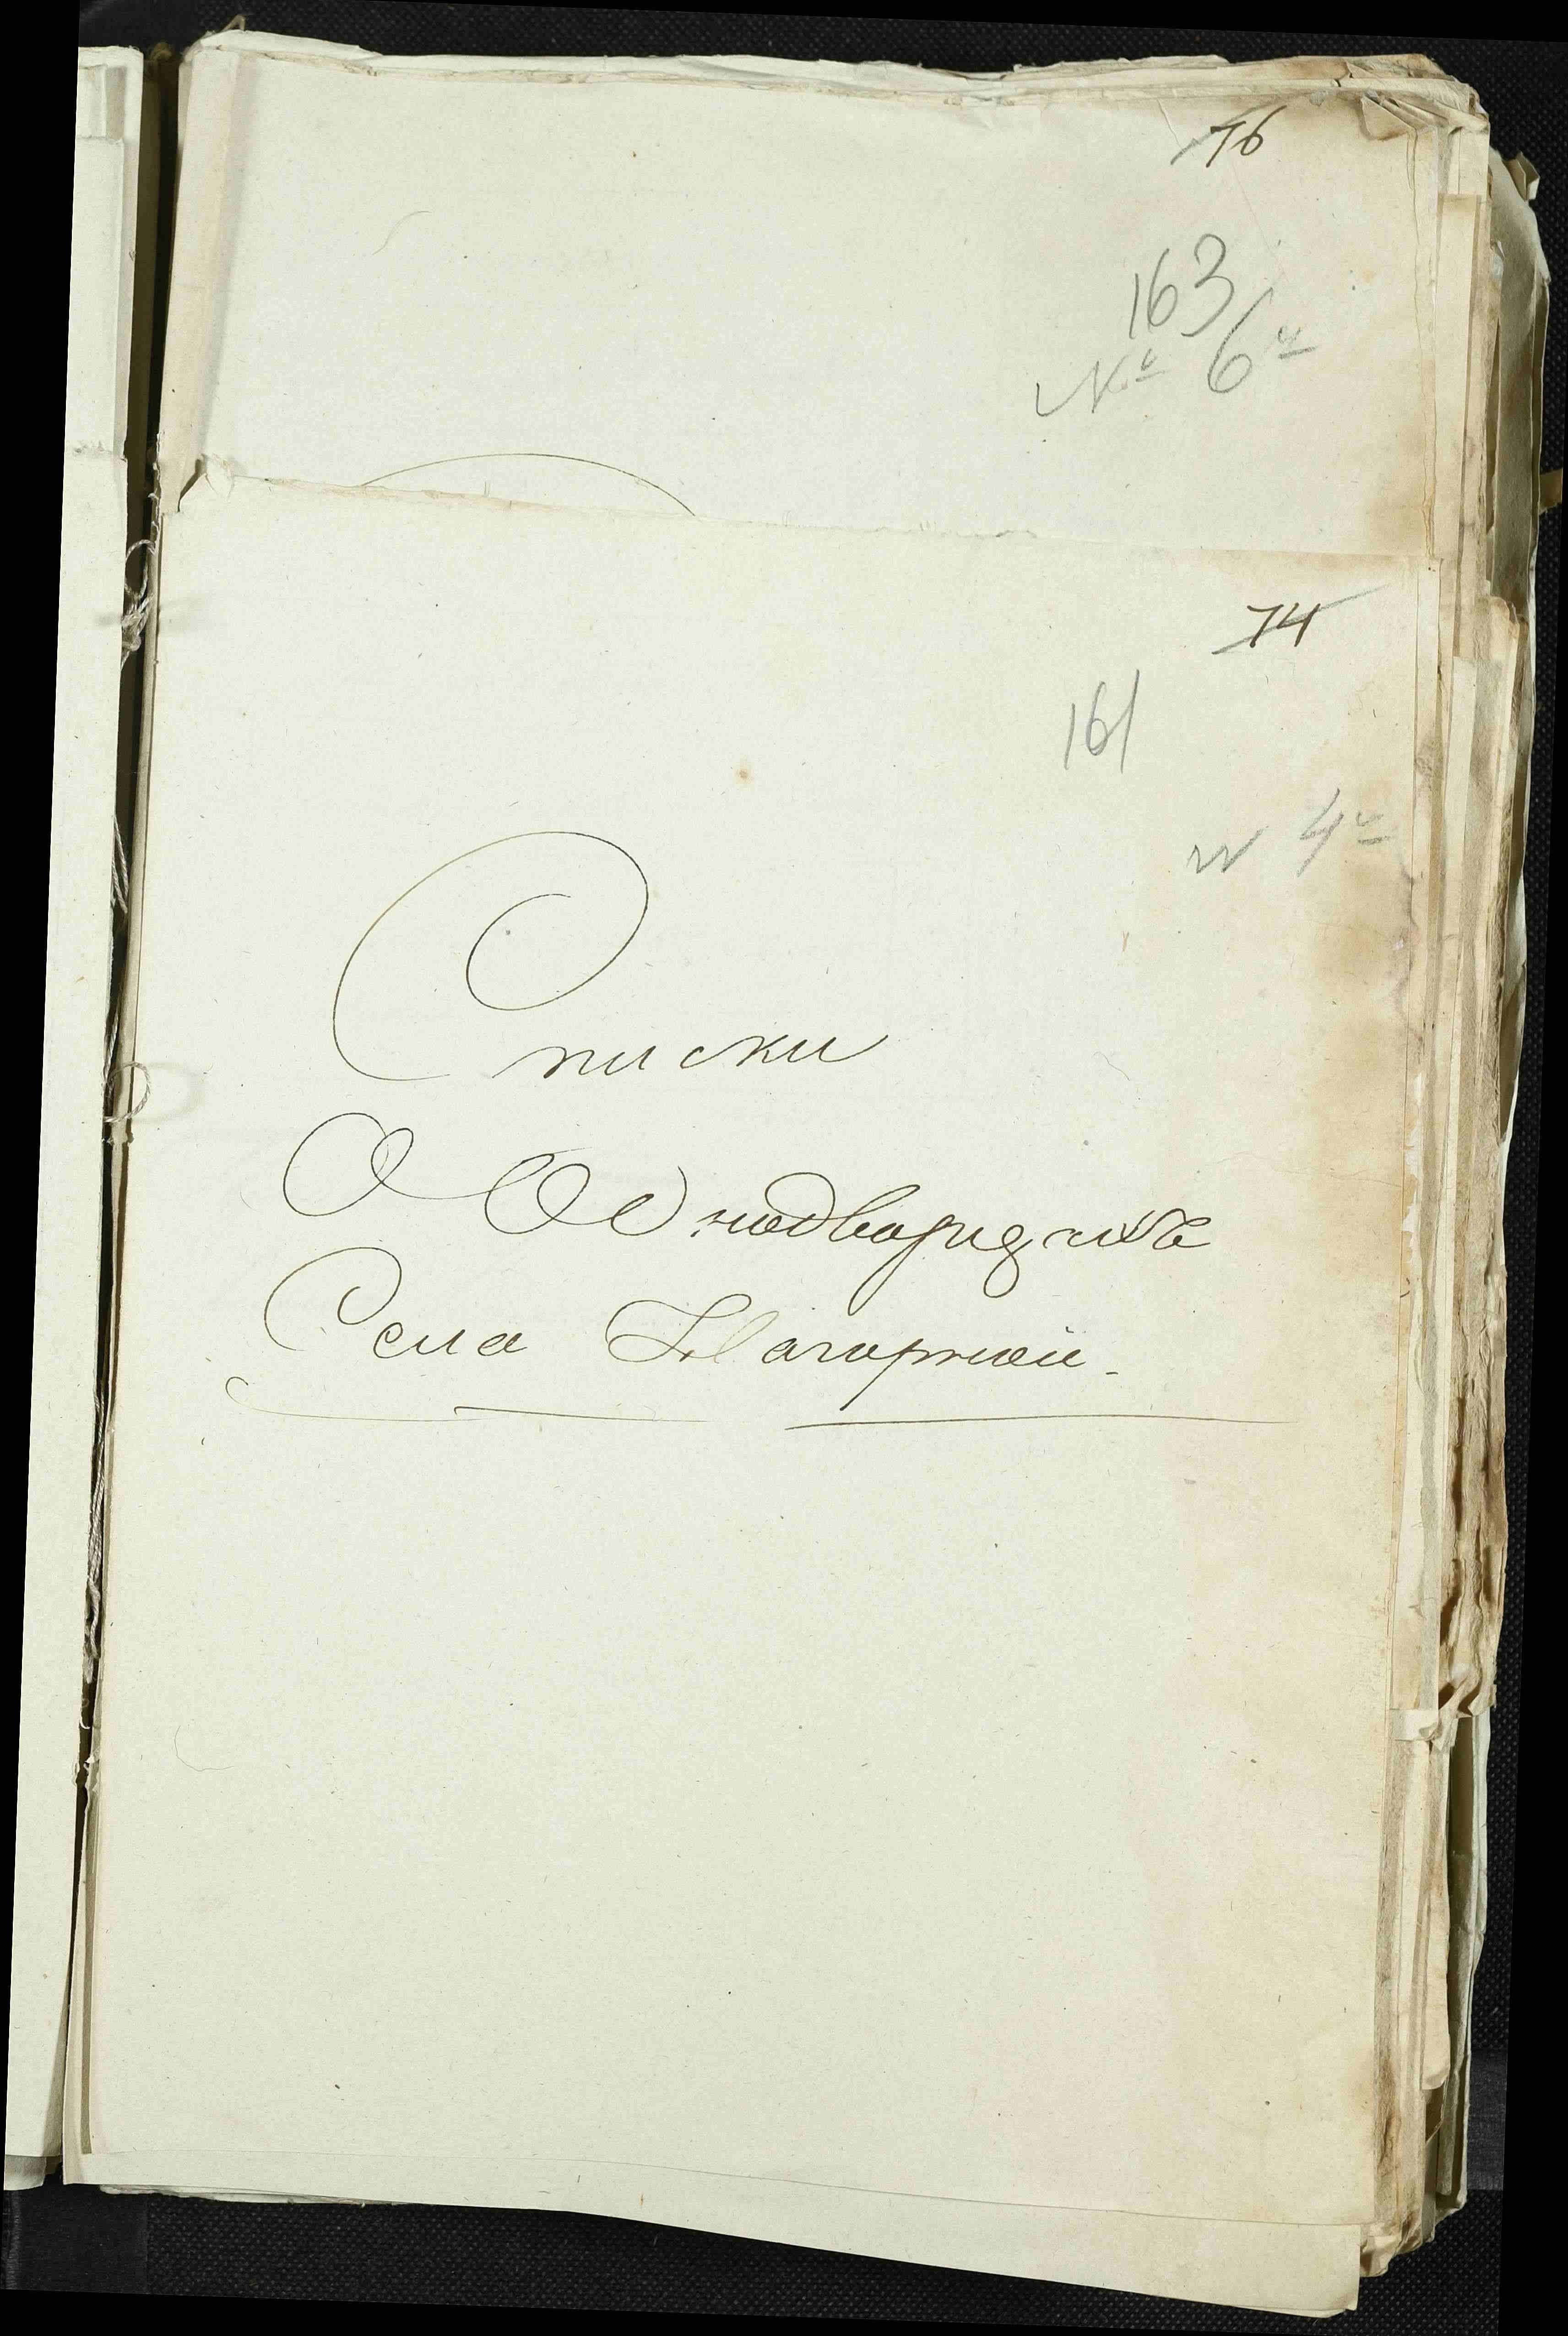 76
163
№ 6й
74
161
№ 4й
Списки
О Однодворцахъ
Села Нагорной.